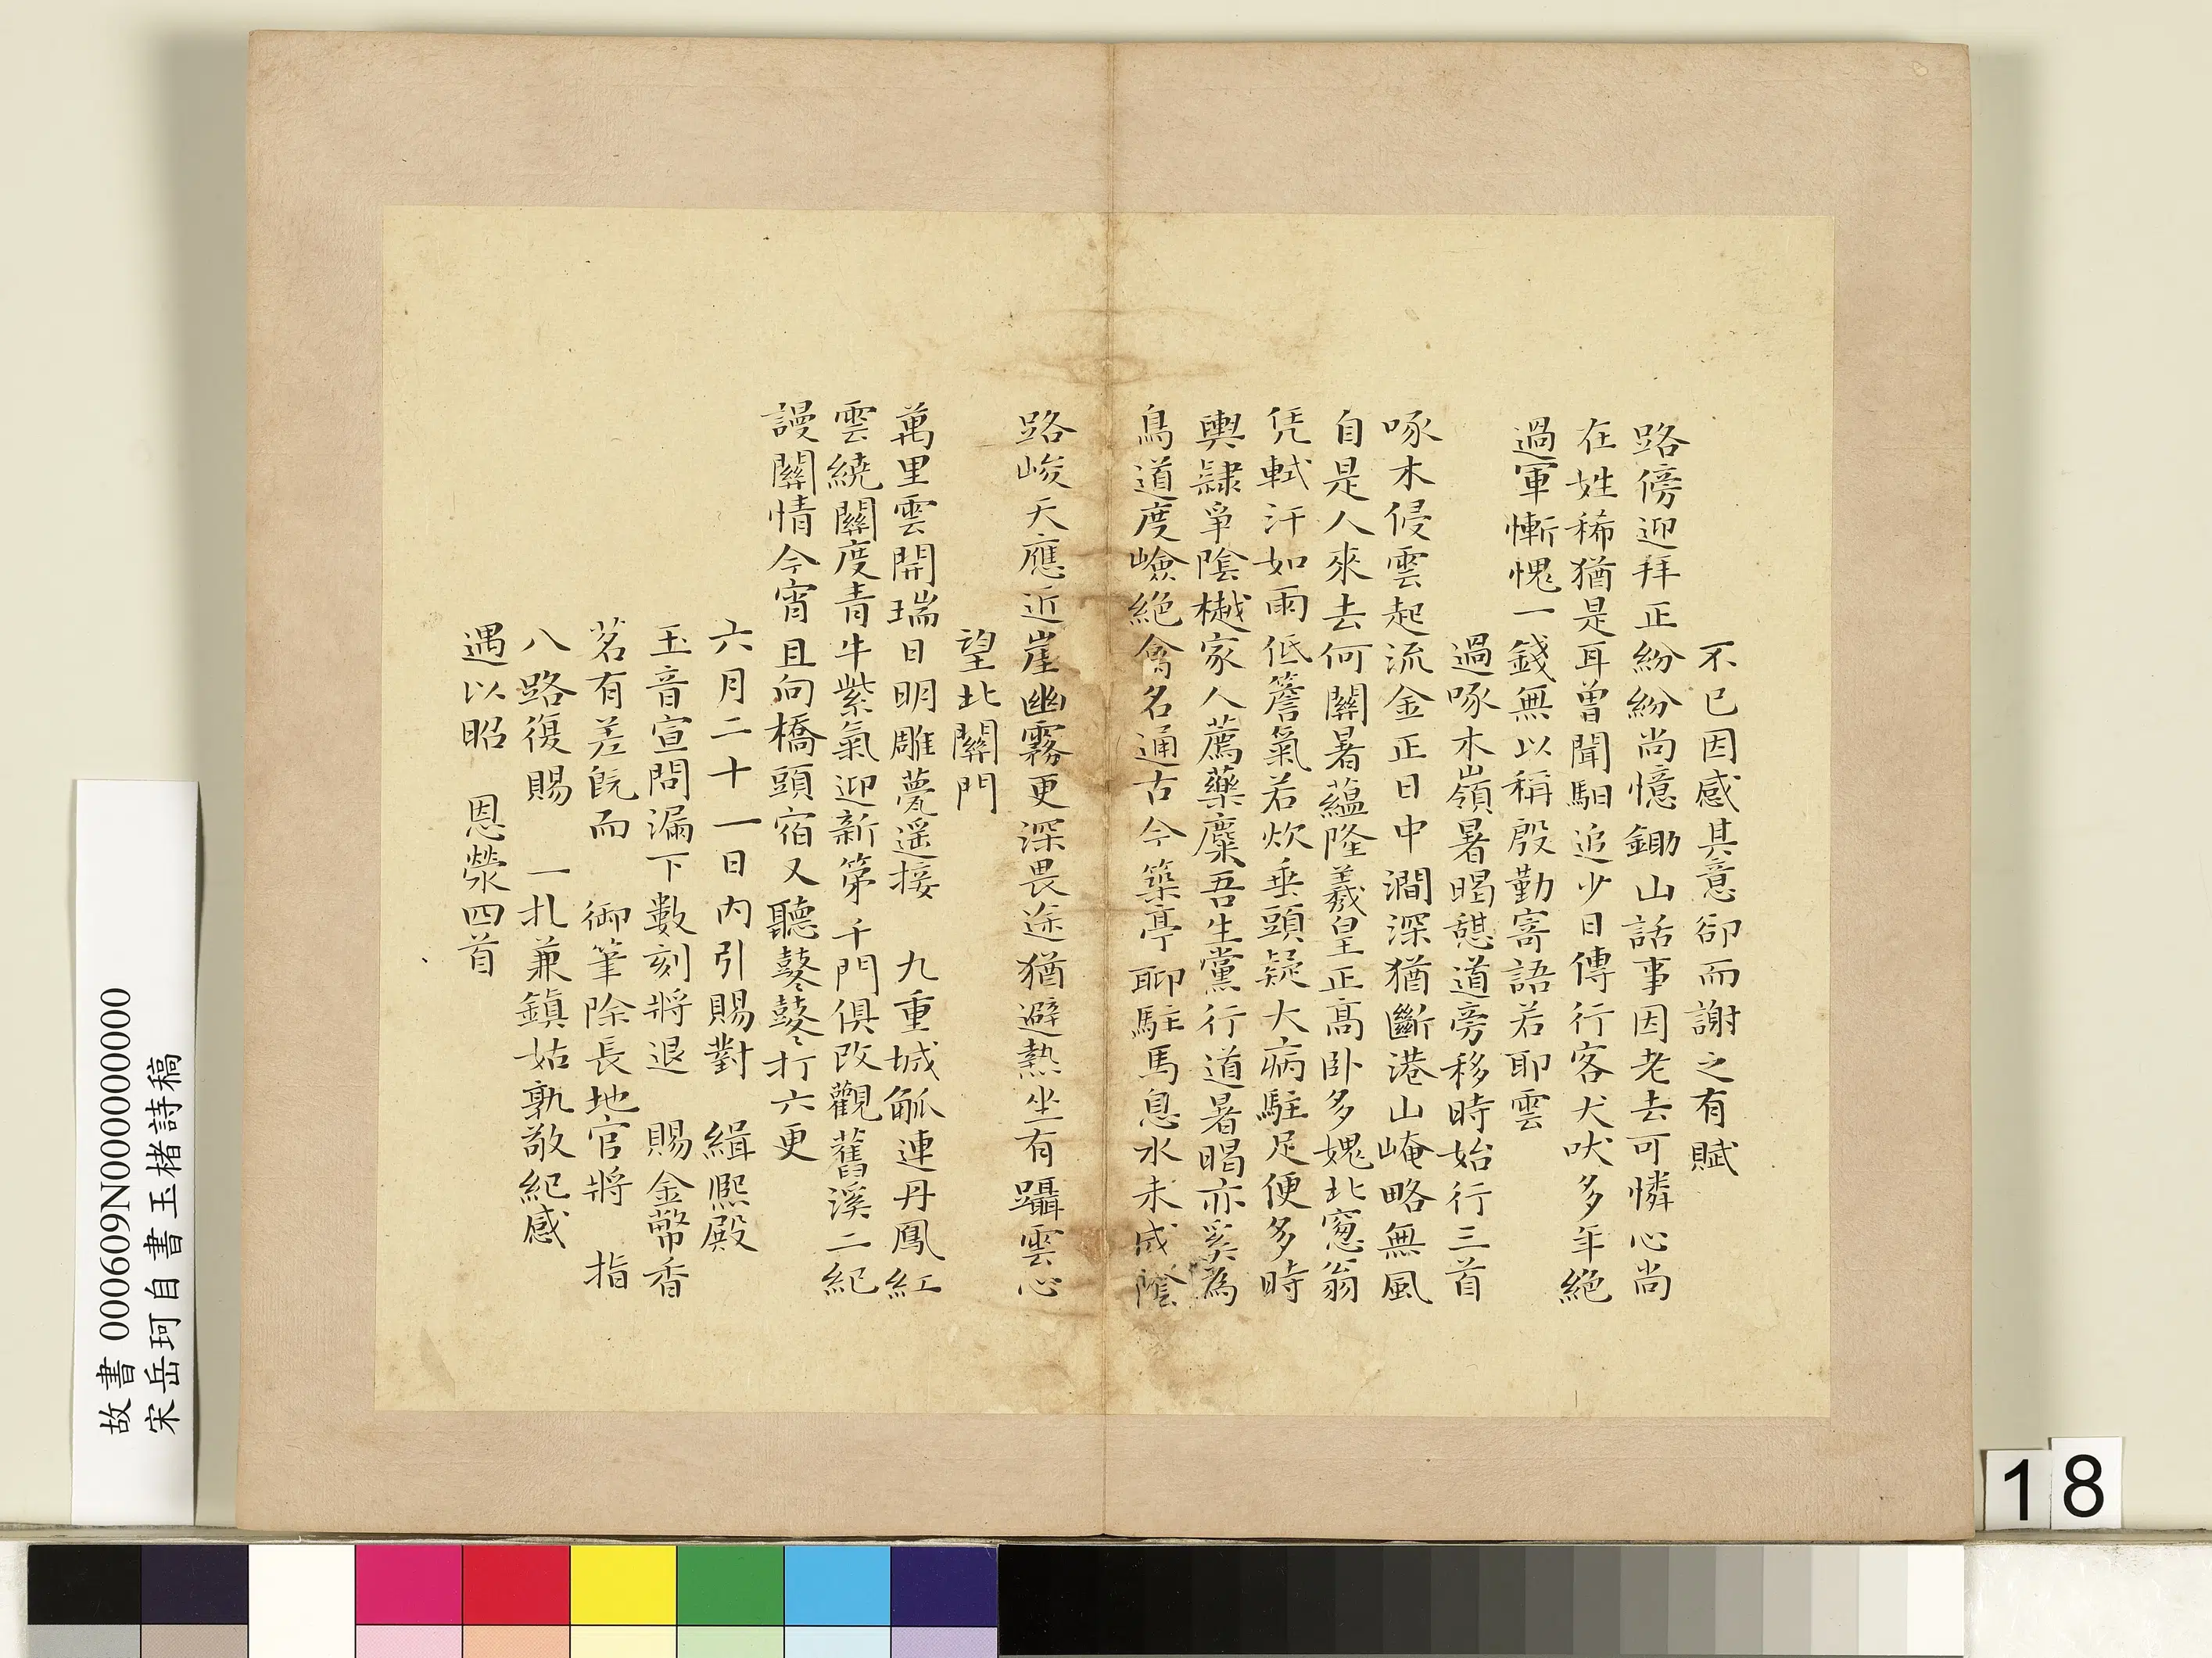 不已因感其意卻而謝之有賦
路傍迎拜正紛紛尚憶鋤山話事因老去可憐心尚
在姓稀猶是耳曾聞駟追少日傳行客犬吠多年絕
過軍慚愧一錢無以稱殷勤寄語若耶雲
過啄木嶺暑暍憇道旁移時始行三首
啄木侵雲起流金正日中澗深猶斷港山崦略無風
自是人來去何關暑蘊隆羲皇正高卧多媿北窻翁
凭軾汗如雨低簷氣若炊垂頭疑大病駐足便多時
輿隷爭陰樾家人薦藥麋吾生黨行道暑暍亦奚為
鳥道度嶮絕禽名通古今築亭聊駐馬息水未成陰
路峻天應近崖幽霧更深畏途猶避熱坐有躡雲心
望北關門
萬里雲開瑞日明雕甍遥接 九重城觚連丹鳳紅
雲繞關度青牛紫氣迎新第千門俱改觀舊溪二紀
謾關情今宵且向橋頭宿又聽鼕鼕打六更
六月二十一日內引賜對 緝熙殿
玉音宣問漏下數刻將退 賜金幣香
茗有差旣而 御筆除長地官將 指
八路復賜 一扎兼鎮姑孰敬紀感
遇以昭 恩榮四首
故書 000609N000000000
宋岳珂自書玉楮詩稿
18